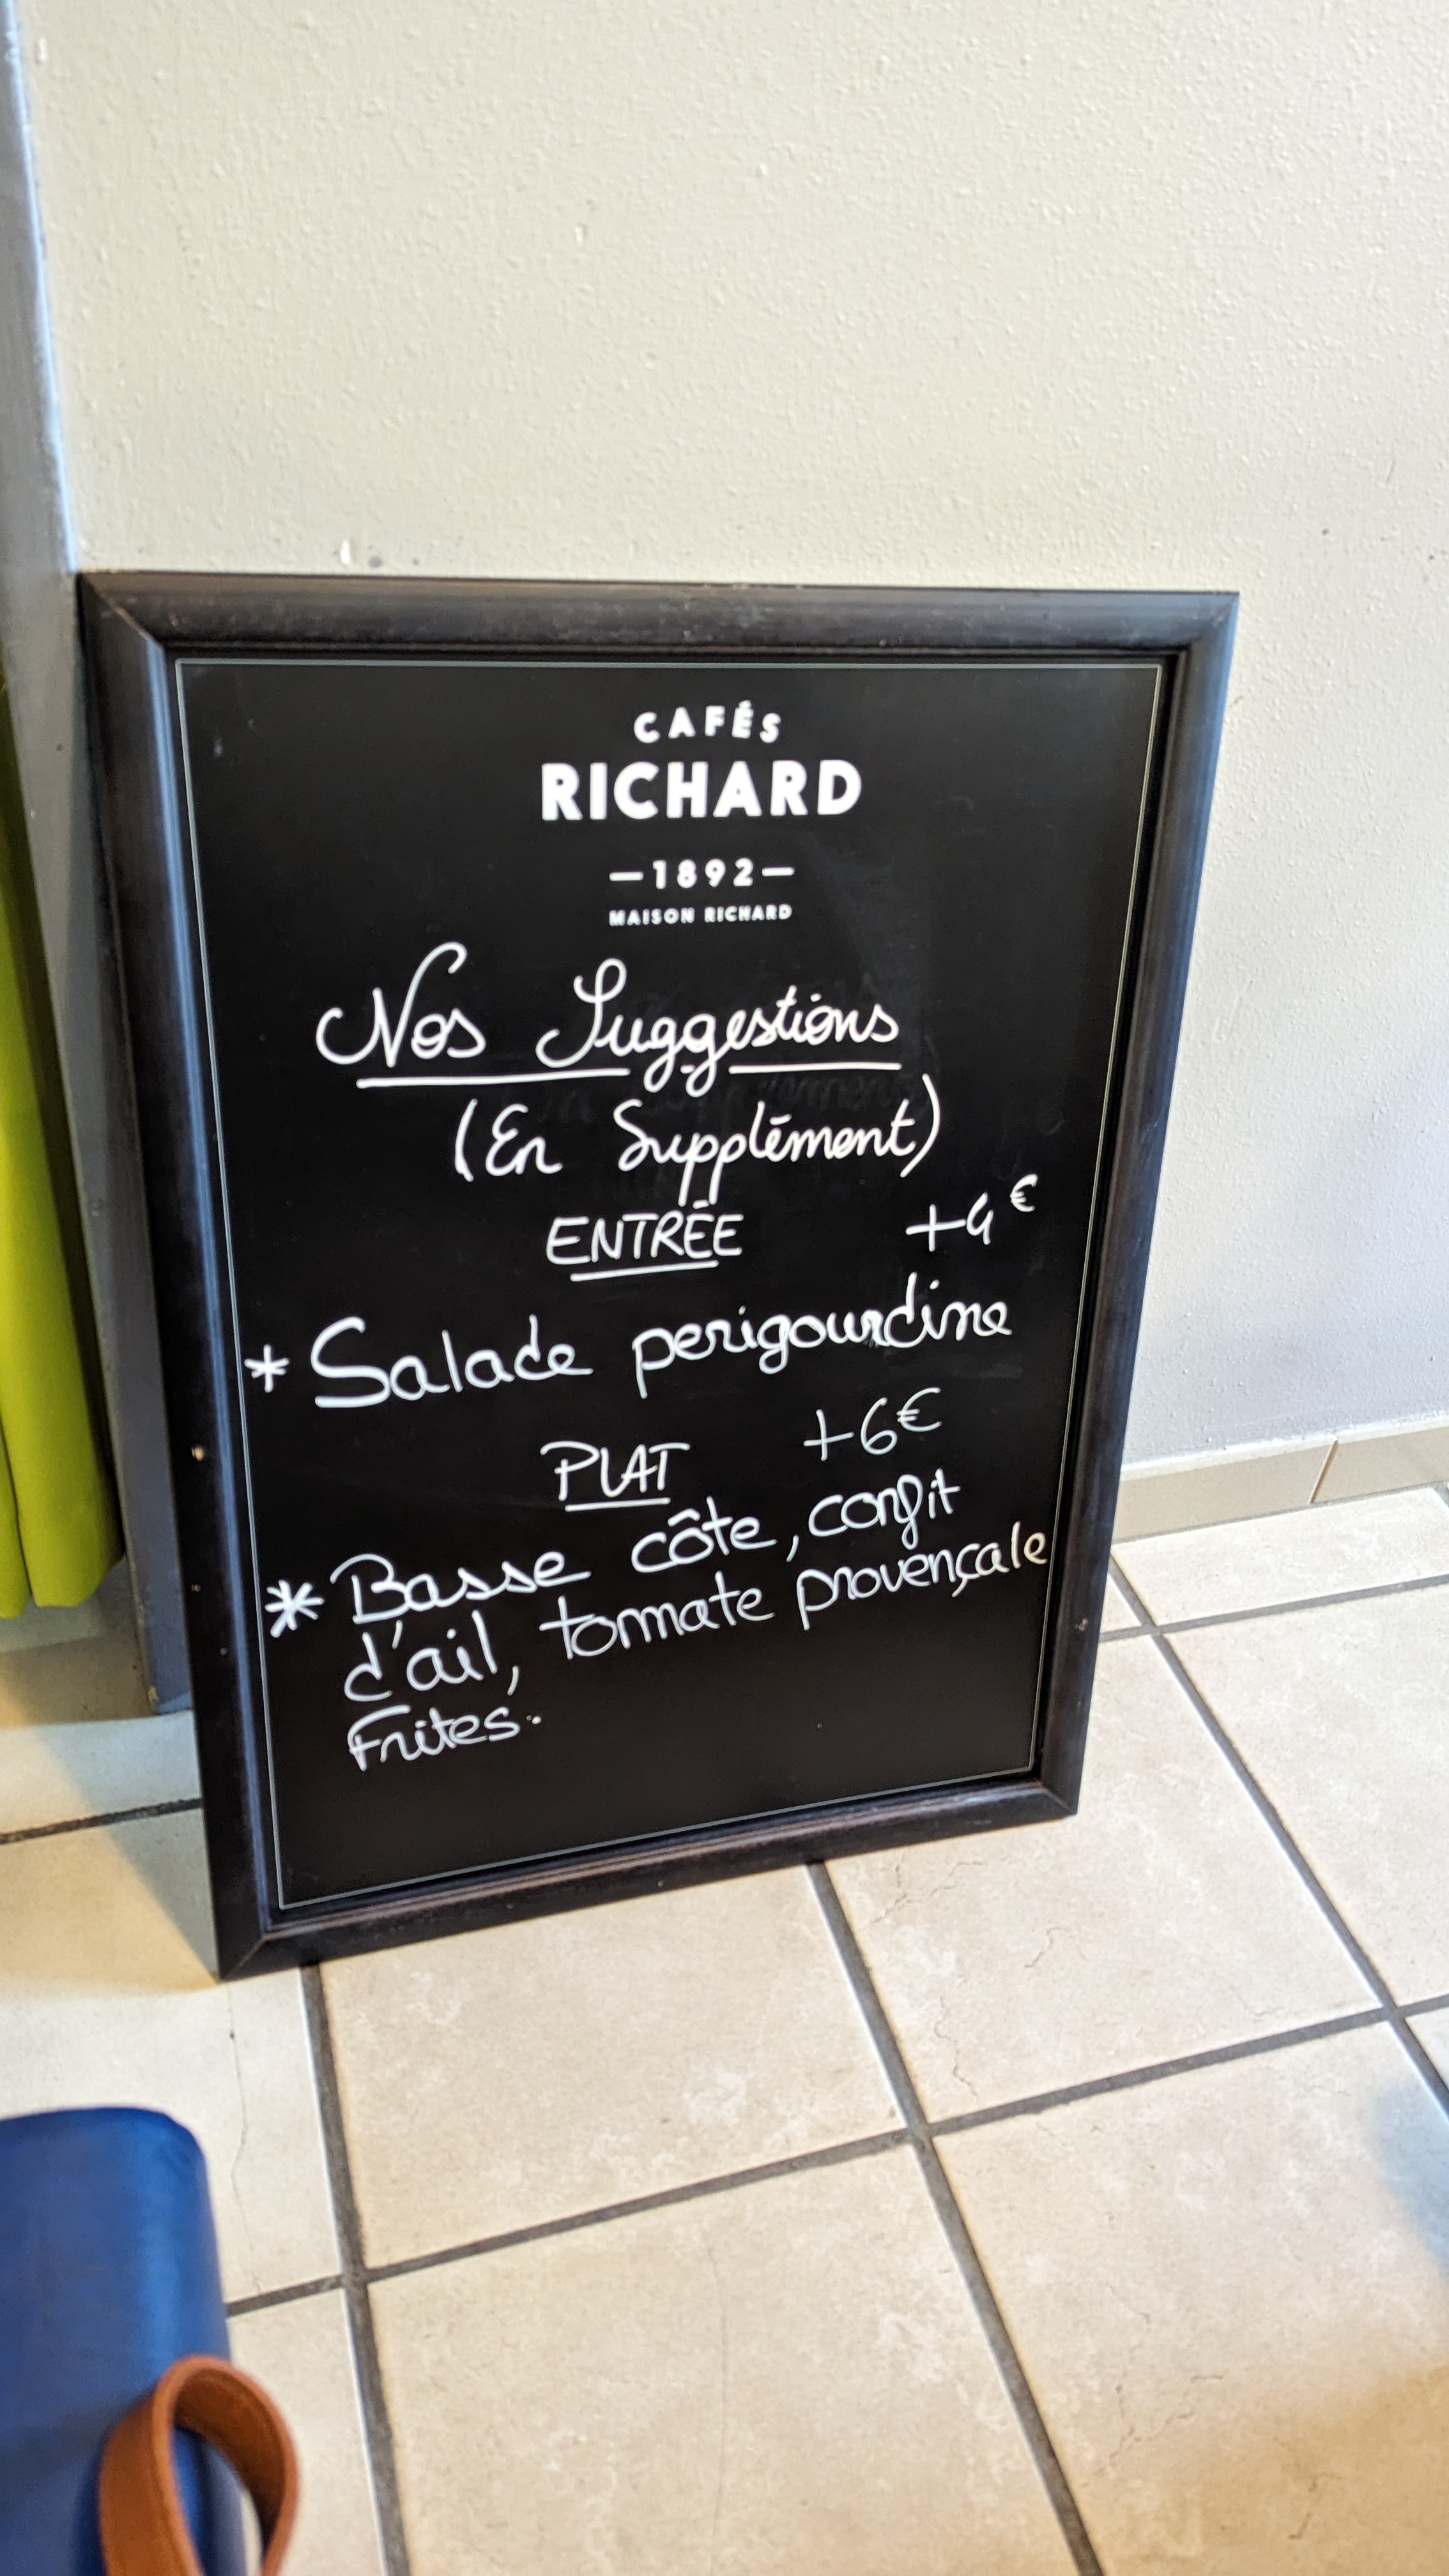 CAFÉS
RICHARD
—1892—
MAISON RICHARD
Nos Suggestions
(En Supplément)
ENTRÉE +4€
* Salade perigourdine
PLAT +6€
* Basse côte, confit
d'ail, tomate provençale
Frites.